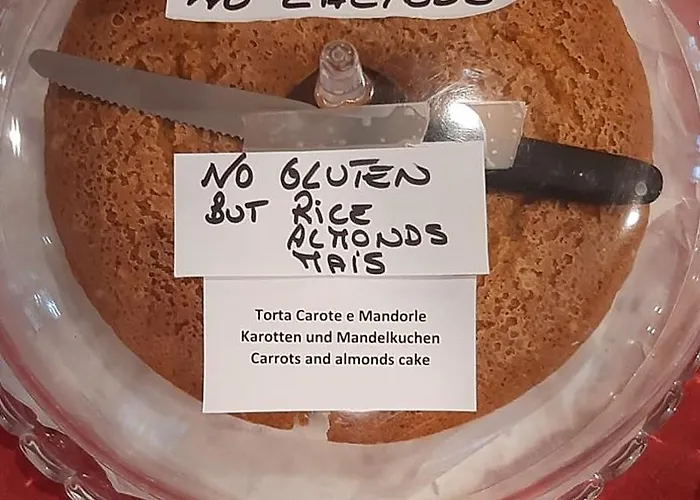 NO LACTOSE
NO GLUTEN
BUT RICE
ALMONDS
MAIS
Torta Carote e Mandorle
Karotten und Mandelkuchen
Carrots and almonds cake